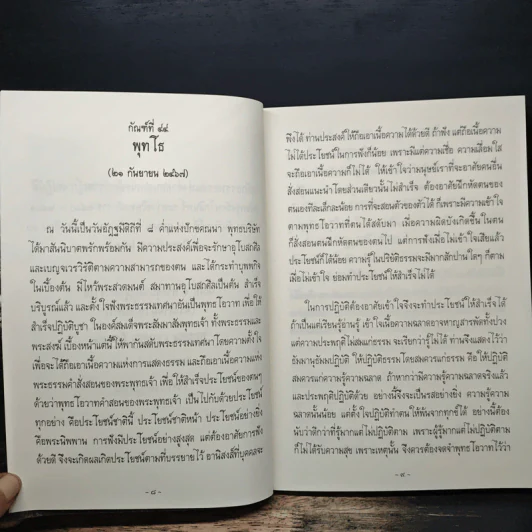 กัณฑ์ที่ ๔๔
พุทโธ
(๒๑ กันยายน ๒๔๖๗)
ณ วันนี้เป็นวันอัฏฐมีดิถีที่ ๘ ค่ำแห่งปักคณนา พุทธบริษัท
ได้มาสันนิบาตพรักพร้อมกัน มีความประสงค์เพื่อจะรักษาอุโบสถศีล
และเบญจเวรวิรัติตามความสามารถของตน และได้กระทำบุพพกิจ
ในเบื้องต้น มีไหว้พระสวดมนต์ สมาทานอุโบสถศีลเป็นต้น สำเร็จ
บริบูรณ์แล้ว และตั้งใจฟังพระธรรมเทศนาอันเป็นพุทธโอวาท เพื่อให้
สำเร็จปฏิบัติบูชา ในองค์สมเด็จพระสัมมาสัมพุทธเจ้า ทั้งพระธรรมและ
พระสงฆ์ เบื้องหน้าแต่นี้ให้พากันสดับพระธรรมเทศนาโดยความตั้งใจ
เพื่อจะได้ถือเอาเนื้อความแห่งการแสดงธรรม และถือเอาเนื้อความแห่ง
พระธรรมคำสั่งสอนของพระพุทธเจ้า เพื่อให้สำเร็จประโยชน์ของตนๆ
ด้วยว่าพุทธโอวาทคำสอนของพระพุทธเจ้า เป็นไปกับด้วยประโยชน์
ทุกอย่าง คือประโยชน์ชาตินี้ ประโยชน์ชาติหน้า ประโยชน์อย่างยิ่ง
คือพระนิพพาน การฟังมีประโยชน์อย่างสูงสุด แต่ต้องอาศัยการฟัง
ด้วยดี จึงจะเกิดผลเกิดประโยชน์ตามที่บรรยายไว้ อานิสงส์ที่บุคคลจะ
- ๘ -
พึงได้ ท่านประสงค์ให้ถือเอาเนื้อความได้ด้วยดี ถ้าฟัง แต่ถือเนื้อความ
ไม่ได้ประโยชน์ในการฟังก็น้อย เพราะมีแต่ความเชื่อ ความเลื่อมใส
จะถือเอาเนื้อความก็ไม่ได้ ให้เข้าใจว่ามนุษย์เราที่จะอาศัยคนอื่น
สั่งสอนแนะนำโดยส่วนเดียวนั้น ไม่สำเร็จ ต้องอาศัยฝึกหัดตนของ
ตนเองทีละเล็กละน้อย การที่จะสอนตัวของตัวได้ ก็เพราะมีความเข้าใจ
ตามพุทธโอวาทที่ตนได้สดับมา เมื่อความผิดบังเกิดขึ้น ในตน
ก็สั่งสอนตนฝึกหัดตนของตนไป แต่การฟังเมื่อไม่เข้าใจเสียแล้ว
ประโยชน์ก็ได้น้อย ความรู้ในปริยัติธรรมจะมีมากสักปานใดๆ ก็ตาม
เมื่อไม่เข้าใจ ย่อมทำประโยชน์ให้สำเร็จไม่ได้
ในการปฏิบัติต้องอาศัยเข้าใจจึงจะทำประโยชน์ให้สำเร็จได้
ถ้าเป็นแต่เรียนรู้อ่านรู้ เข้าใจเนื้อความฉลาดอาจหาญสารพัดทั้งปวง
แต่ความประพฤติไม่สมแก่ธรรม จะเรียกว่ารู้ไม่ได้ ท่านจึงแสดงไว้ว่า
ธัมมานุธัมมปฏิบัติ ให้ปฏิบัติธรรมโดยสมควรแก่ธรรม คือ ให้ปฏิบัติ
สมควรแก่ความรู้ความฉลาด ถ้าหากว่ามีความรู้ความฉลาดจริงแล้ว
และประพฤติปฏิบัติด้วย อย่างนี้จึงจะเป็นรสอย่างยิ่ง ความรู้ความ
ฉลาดนั้นน้อย แต่ตั้งใจปฏิบัติทำตนให้พ้นจากทุกข์ได้ อย่างนี้ต้อง
นับว่าดีกว่าที่รู้มากแต่ไม่ปฏิบัติตาม เพราะผู้รู้มากแต่ไม่ปฏิบัติตาม
ก็ไม่ได้รับความสุข เพราะเหตุนั้น จึงควรต้องจดจำพุทธโอวาทไว้ว่า
- ๙ -